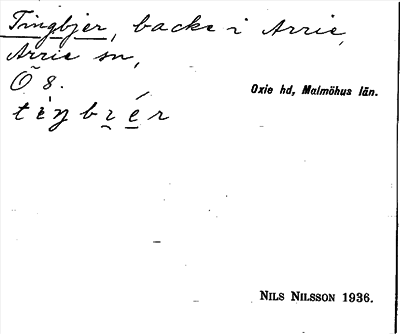 Tingbjer, backe i Arrie,
Arrie sn,
Ö 8.
Oxie hd, Malmöhus län.
NILS NILSSON 1936.